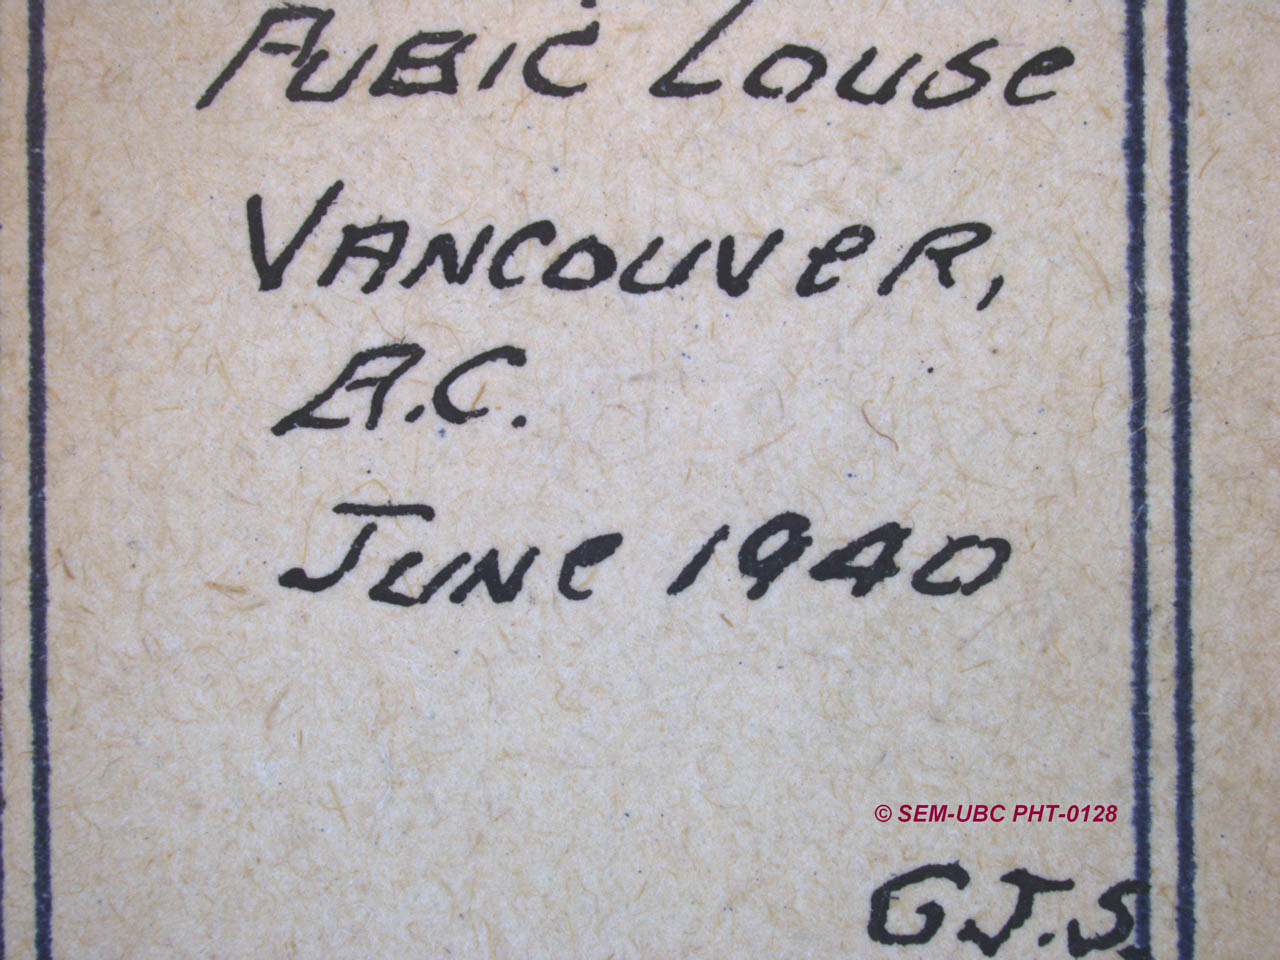 Pubic Louse
Vancouver,
B.C.
June 1940
© SEM-UBC PHT-0128
G.J.S.